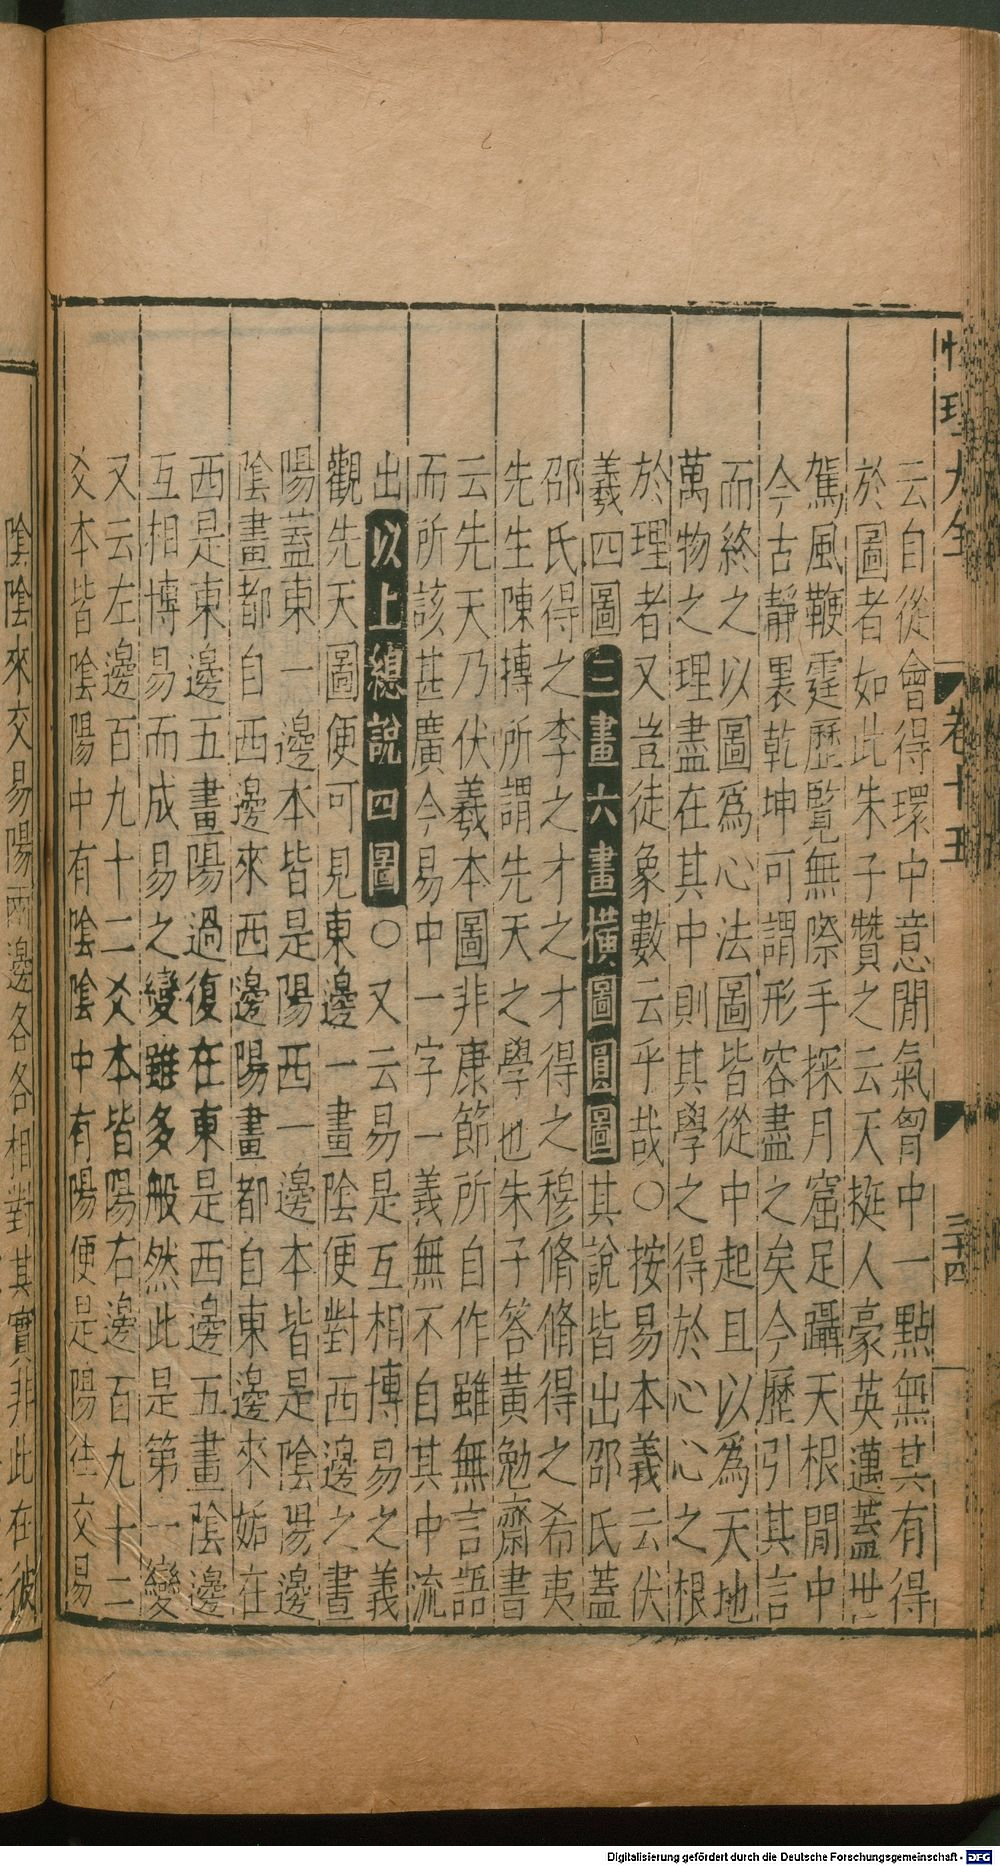 性理大全
卷十五
三十四
云自從會得環中意閒氣胷中一點無其有得
於圖者如此朱子贊之云天挺人豪英邁蓋世
駕風鞭霆歷覽無際手探月窟足躡天根閒中
今古靜裏乾坤可謂形容盡之矣今歷引其言
而終之以圖爲心法圖皆從中起且以爲天地
萬物之理盡在其中則其學之得於心心之根
於理者又豈徒象數云乎哉○按易本義云伏
羲四圖三畫六畫橫圖圓圖其說皆出邵氏蓋
邵氏得之李之才之才得之穆脩脩得之希夷
先生陳摶所謂先天之學也朱子答黃勉齋書
云先天乃伏羲本圖非康節所自作雖無言語
而所該甚廣今易中一字一義無不自其中流
出以上總說四圖○又云易是互相博易之義
觀先天圖便可見東邊一畫陰便對西邊之畫
陽蓋東一邊本皆是陽西一邊本皆是陰陽邊
陰畫都自西邊來西邊陽畫都自東邊來姤在
西是東邊五畫陽過復在東是西邊五畫陰邊
互相博易而成易之變雖多般然此是第一變
又云左邊百九十二爻本皆陽右邊百九十二
爻本皆陰陽中有陰陰中有陽便是陽往交易
陰陰來交易陽兩邊各各相對其實非此在彼
Digitalisierung gefördert durch die Deutsche Forschungsgemeinschaft - DFG